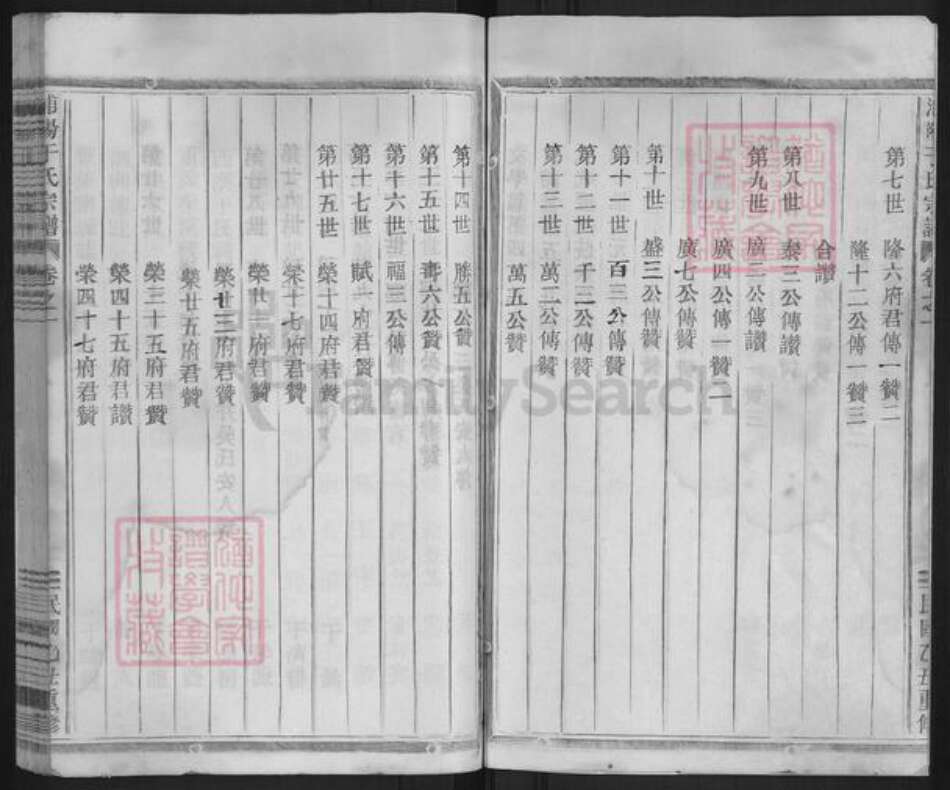 第七世 隆六府君傳一贊二
隆十二公傳一贊三
合讚
第八世 泰三公傳讚
第九世 廣二公傳讚
廣四公傳一贊二
廣七公傳贊
第十世 盛三公傳贊
第十一世 百三公傳贊
第十二世 千三公傳贊
第十三世 萬二公傳贊
萬五公贊
第十四世 勝五公贊
第十五世 壽六公贊
第十六世 福三公傳
第十七世 賦一府君贊
第廿五世 榮十四府君贊
榮十七府君贊
榮廿二府君贊
榮廿三府君贊
榮廿五府君贊
榮三十五府君贊
榮四十五府君讚
榮四十七府君贊
氏宗譜 卷之一
民國乙丑重修
FamilySearch